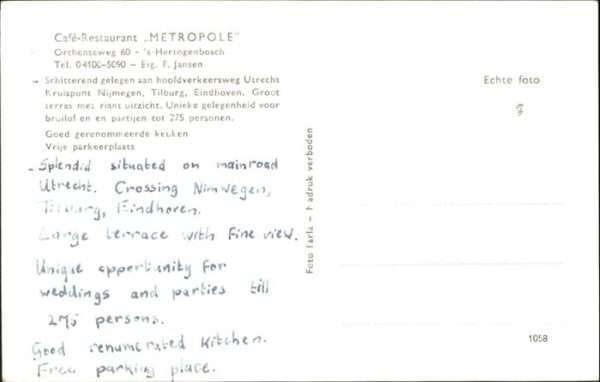 Café-Restaurant „METROPOLE"
Orthenseweg 60 - 's-Hertogenbosch
Tel. 04100-5090 - Eig. F. Jansen
Schitterend gelegen aan hoofdverkeersweg Utrecht
Kruispunt Nijmegen, Tilburg, Eindhoven. Groot
terras met riant uitzicht. Unieke gelegenheid voor
bruilof en en partijen tot 275 personen.
Goed gerenommeerde keuken
Vrije parkeerplaats
- Splendid situated on mainroad
Utrecht. Crossing Nimwegen,
Tilburg, Eindhoven.
Large terrace with fine view.
Unique opportunity for
weddings and parties till
275 persons.
Good renumerated kitchen.
Free parking place.
Foto Tarla - Nadruk verboden
Echte foto
1058